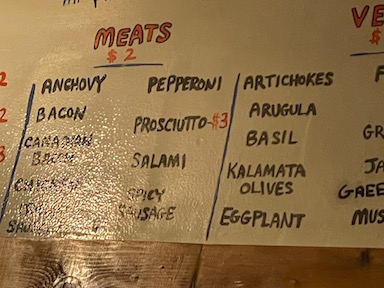 MEATS
$2
ANCHOVY
BACON
CANADIAN
BACON
CHICKEN
PEPPERONI
PROSCIUTTO-$3
SALAMI
SPICY
SAUSAGE
VE
$
ARTICHOKES
ARUGULA
BASIL
KALAMATA
OLIVES
EGGPLANT
F
GR
JA
GREE
MUS
2
2
3